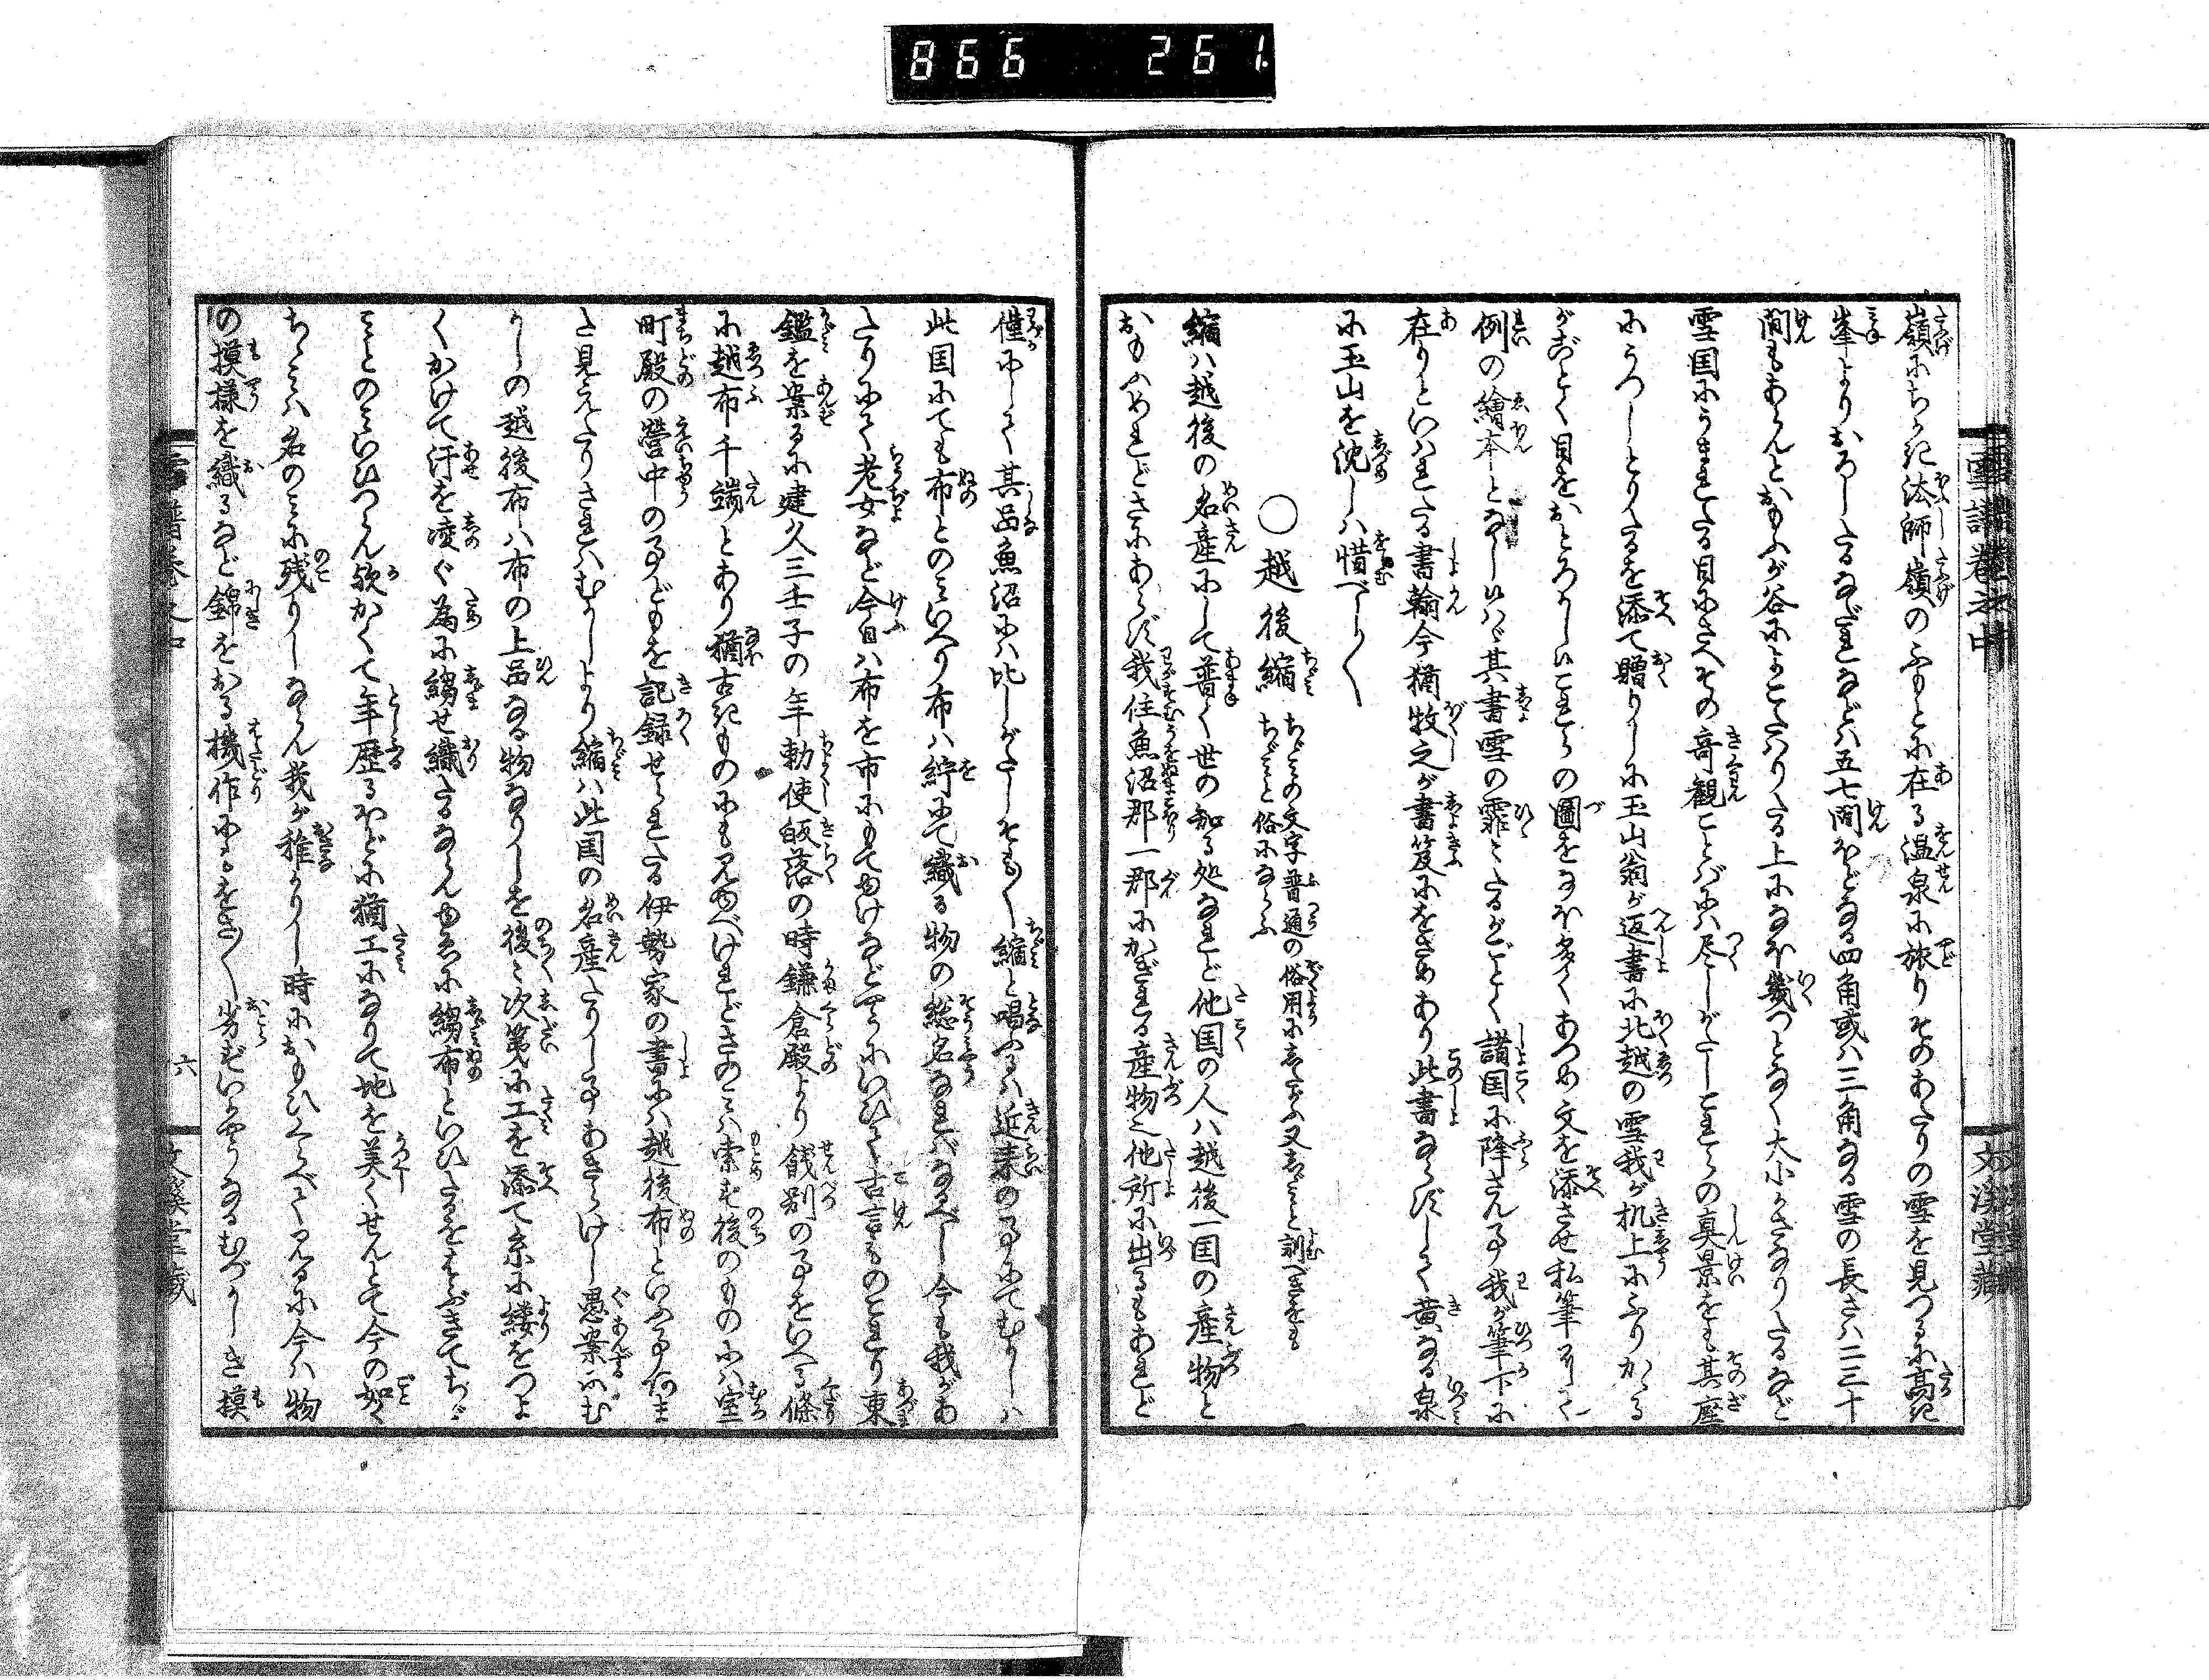 866 261
雪譜巻之中
文溪堂蔵
嶺にちかき法師嶺のふもとに在る温泉に旅りそのあたりの雪を見つるに高き
峯よりおろしたるなだれなどは五七間ほどなる四角或は三角なる雪の長さは二三十
間もあらんとおもふが谷によこたはりたる上になほ幾つとなく大小かさなりたるなど
雪国にうまれたる目にさへその奇観ことばには尽しがたしこれらの真景をも其座
にうつしとりたるを添て贈りしに玉山翁が返書に北越の雪我が机上にふりかゝる
がごとく目をおどろかしぬこれらの圖をなほ多くあつめ文を添させ私筆にて
例の繪本となし候はゞ其書雪の霏〻たるがごとく諸国に降さん事我が筆下に
在りといはれたる書翰今猶牧之が書笈にをさめあり此書ならずして黄なる泉
に玉山を沈しは惜べし〳〵
〇越後縮 ちゞみの文字普通の俗用にしたがふ又しゞみと訓べきをも
ちゞみと俗にならふ
縮は越後の名産にして普く世の知る処なれど他国の人は越後一国の産物と
おもふめれどさにあらず我住魚沼郡一郡にかぎれる産物也他所に出るもあれど
僅にして其品魚沼には比しがたしそも〳〵縮と唱ふるは近来の事にてむかしは
此国にても布とのみいへり布は紵にて織る物の総名なればなるべし今も我があ
たりにて老女など今日は布を市にもてゆけなどやうにいひて古言ものこれり東
鑑を案るに建久三壬子の年勅使皈落の時鎌倉殿より餞別の事をいへる條
に越布千端とあり猶古きものにも見ゆべけれどさのみは索ず後のものには室
町殿の營中の事どもを記録せられたる伊勢家の書には越後布といふ事あま
た見えたりさればむかしより縮は此国の名産たりし事あきらけし愚案にむ
かしの越後布は布の上品なる物なりしを後〻次第に工を添て糸に縷をつよ
くかけて汗を凌ぐ為に縐せ織たるならんゆゑに縐布といひたるをはぶきてちゞ
みとのみいひつらん歟かくて年歴るほどに猶工になりて地を美くせんとて今の如く
ちゞみは名のみに残りしならん我が稚かりし時におもひくらべて見るに今は物
の模様を織るなど錦をおる機作にもをさ〳〵劣ずいやうなるむづかしき模
六